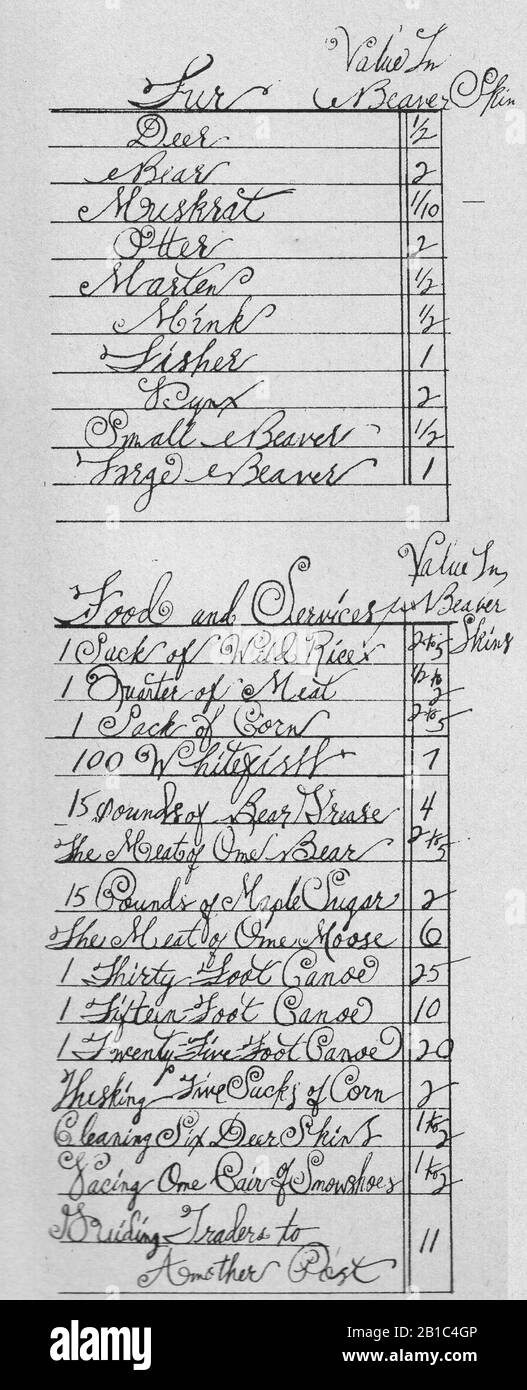 Value In
Fur Beaver Skin
Deer 1/2
Bear 2
Muskrat 1/10
Otter 2
Marten 1/2
Mink 1/2
Fisher 1
Lynx 2
Small Beaver 1/2
Large Beaver 1
Value In
Food and Services Beaver
Skins
1 Sack of Wild Rice 2 to 5
1 Quarter of Meat 1/2 to 2
1 Sack of Corn 2 to 5
100 Whitefish 7
15 Pounds of Bear Grease 4
The Meat of One Bear 2 to 5
15 Pounds of Maple Sugar 2
The Meat of One Moose 6
1 Thirty Foot Canoe 25
1 Fifteen Foot Canoe 10
1 Twenty Five Foot Canoe 20
Husking Five Sacks of Corn 2
Cleaning Six Deer Skins 1 to 2
Lacing One Pair of Snowshoes 1 to 2
Guiding Traders to
Another Post 11
alamy
Image ID: 2B1C4GP
www.alamy.com